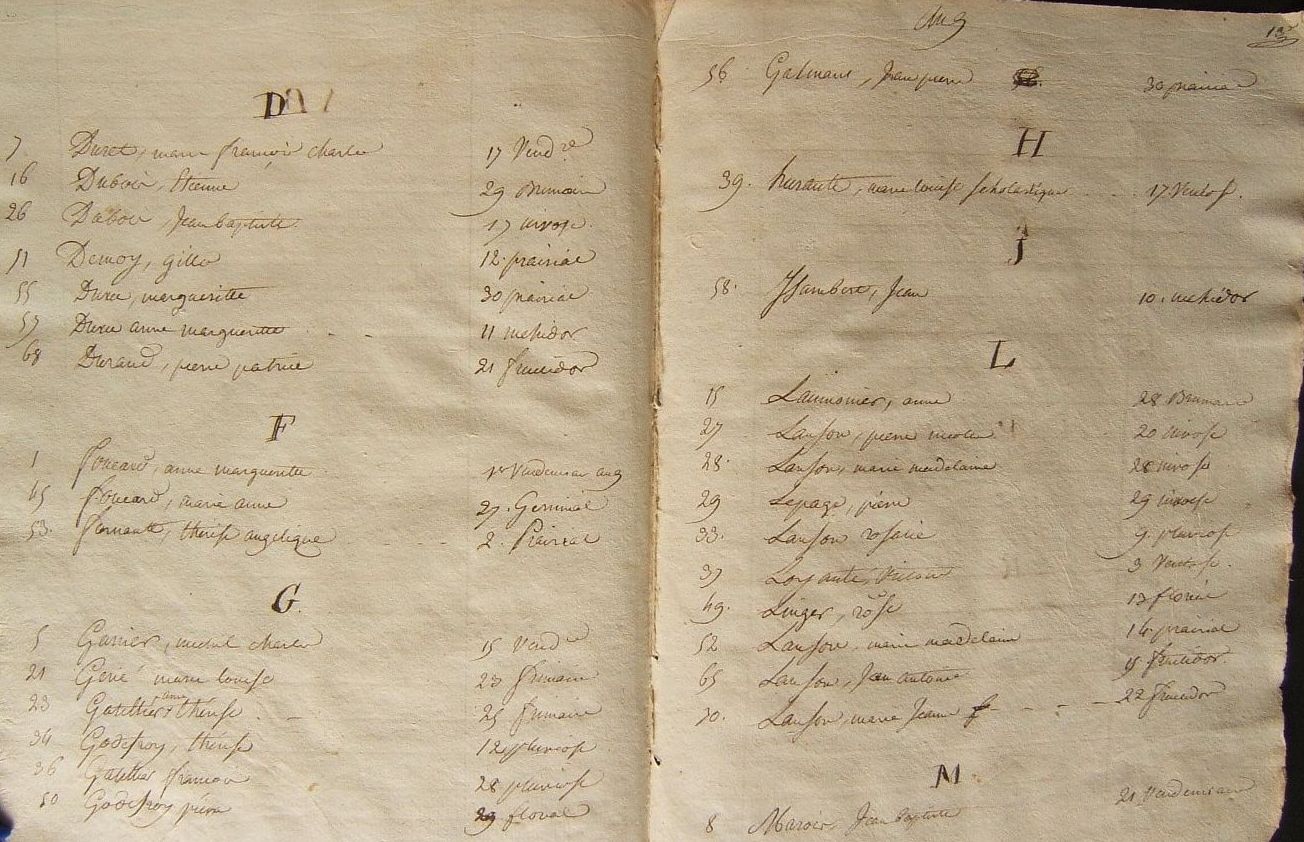 D
7 Duret, marie françois charles 17 Vend.re
16 Dubois, Etienne 29 Brumaire
26 Dubois, Jean baptiste 17 nivose.
51 Demoy, gilles 12. prairial
55 Duru, margueritte 30 prairial
57 Duru anne margueritte 11 messidor
68 Durand, pierre patrice 21 fructidor
F
1 foucard, anne margueritte 1er Vendemiaire an 9
45 foucard, marie anne 27. Germinal
53. thérèse angélique 2. Prairial
G
5 Garnier, michel charles 15 Vend.re
21 Géné marie louise 23 frimaire
23 Gatellier anne thérèse 25 frimaire
34 Godefroy, thérèse 12 pluviose
36 Gatellier françois 28 pluviose
50 Godefroy pierre 29 floreal
an 9
56 Jean pierre 30 prairial
H
39. marie louise scholastique 17 Ventose.
J
58. Jsambert, Jean 10. messidor
L
15 Laumonier, anne 28 Brumaire
27 Lanson, pierre nicolas 20 nivose
28. Lanson, marie madelaine 28 nivose
29 Lepage, pierre 29 nivose
33. Lanson rosalie 9. pluviose
37 3 Ventose.
49. Linger, rose 13 floréal
52 Lanson, marie madelaine 14 prairial
65 Lanson, Jean antoine 15 fructidor
70. Lanson, marie Jeanne 22 fructidor
M
8 Marois, Jean baptiste 21 Vendemiaire